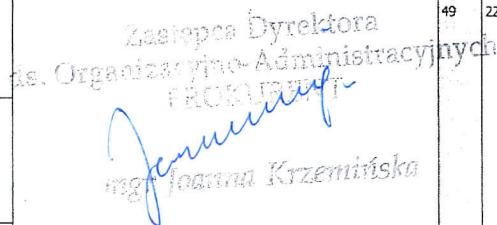 49 22
Zastępca Dyrektora
ds. Organizacyjno-Administracyjnych
PROKURENT
mgr Joanna Krzemińska